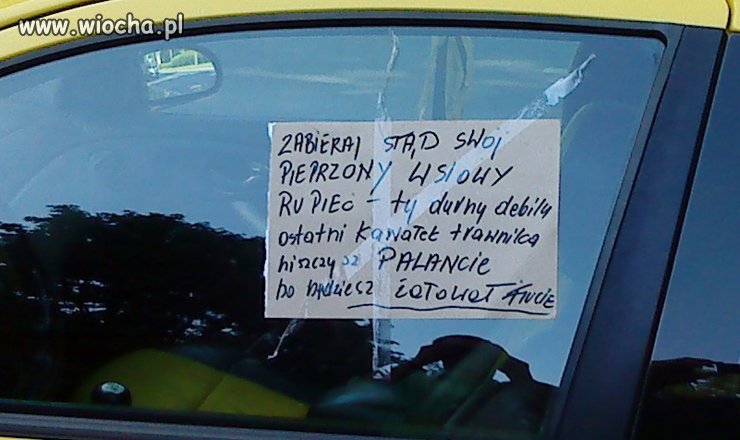 www.wiocha.pl
ZABIERAJ STĄD SWÓJ
PIEPRZONY WSIOWY
RUPIEĆ - ty durny debilu
ostatni kawałek trawnika
niszczysz PALANCIE
bo będziesz żałował